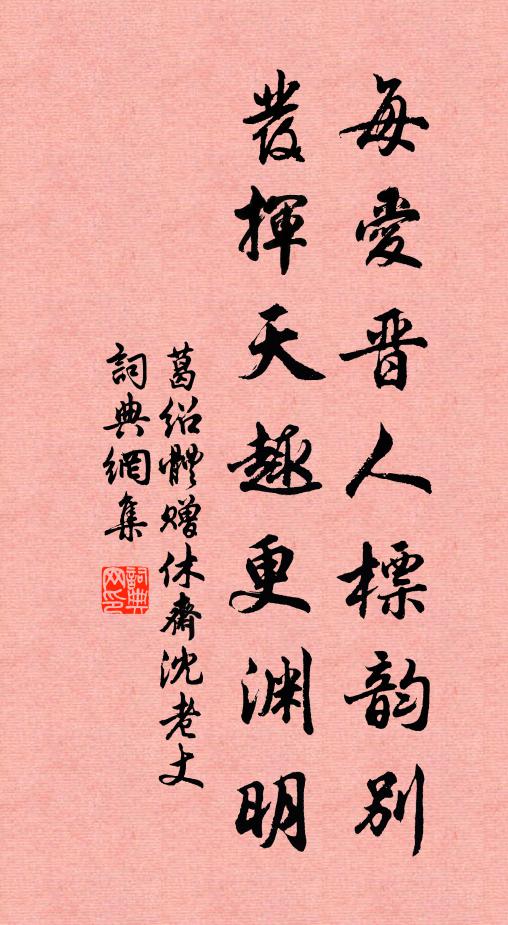 每愛晋人標韵别
發揮天趣更渊明
葛绍體赠休齋沈老丈
詞典網集
詞典网印